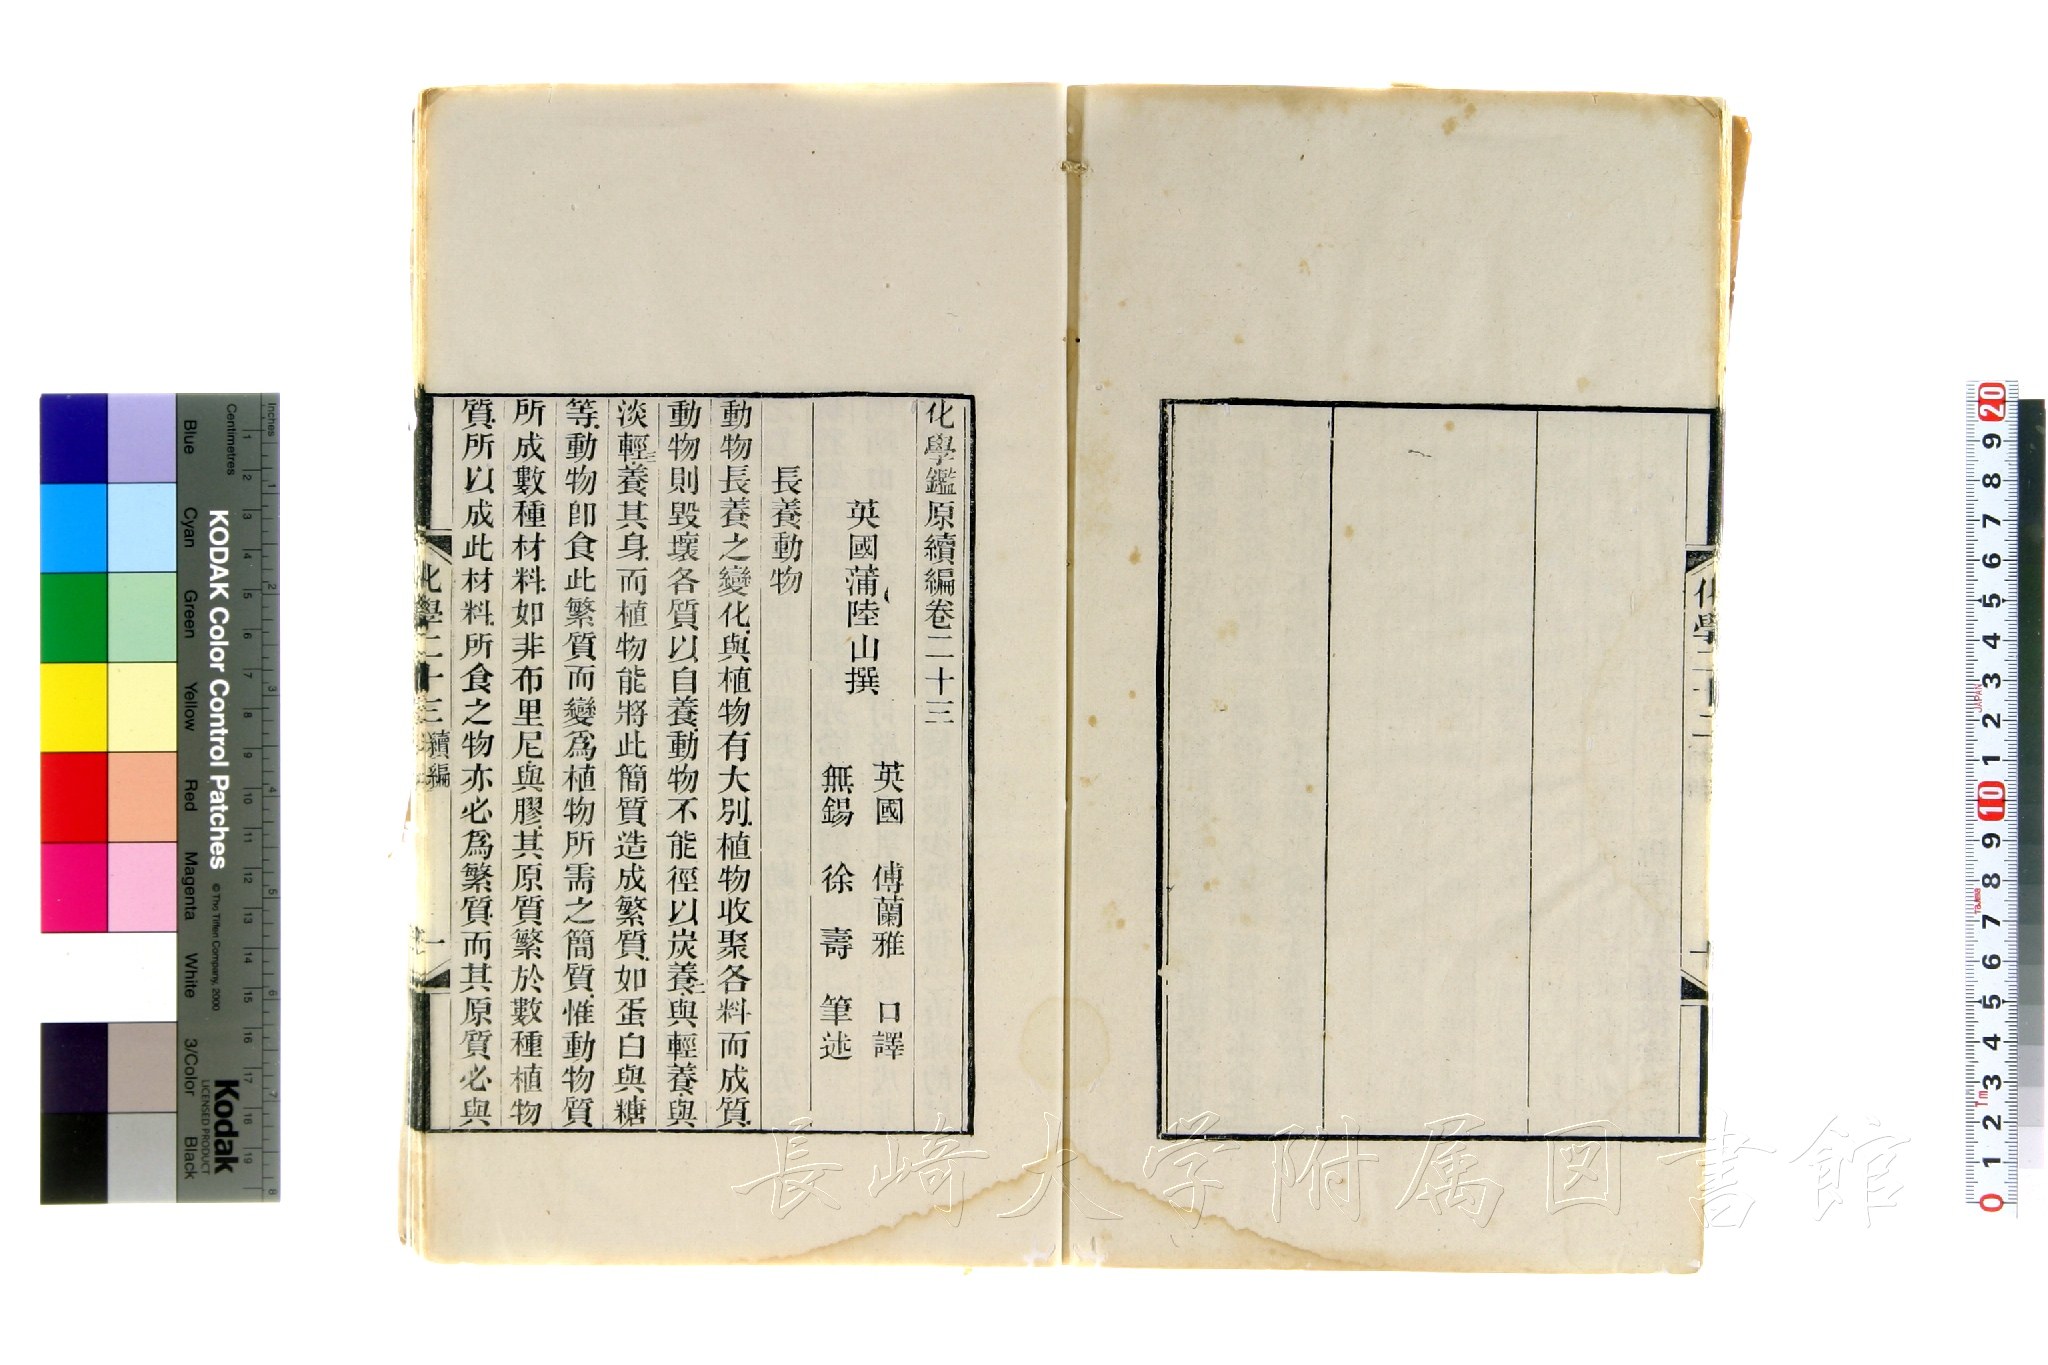 化學鑑原續編卷二十三
英國蒲陸山撰
英國 傅蘭雅 口譯
無錫 徐壽 筆述
長養動物
動物長養之變化與植物有大別植物收聚各料而成質
動物則毀壞各質以自養動物不能徑以炭養二與輕養與
淡輕三養其身而植物能將此簡質造成繁質如蛋白與糖
等動物卽食此繁質而變爲植物所需之簡質惟動物質
所成數種材料如非布里尼與膠其原質繁於數種植物
質所以成此材料所食之物亦必爲繁質而其原質必與
化學二十三 續編
一
化學二十二
長崎大学附属図書館
KODAK Color Control Patches
© The Tiffen Company, 2000
Kodak
LICENSED PRODUCT
Inches
Centimetres
Blue
Cyan
Green
Yellow
Red
Magenta
White
3/Color
Black
1 2 3 4 5 6 7 8 9 10 11 12 13 14 15 16 17 18 19
1 2 3 4 5 6 7 8
20 9 8 7 6 5 4 3 2 1 10 9 8 7 6 5 4 3 2 1 0
JAPAN
Tajima